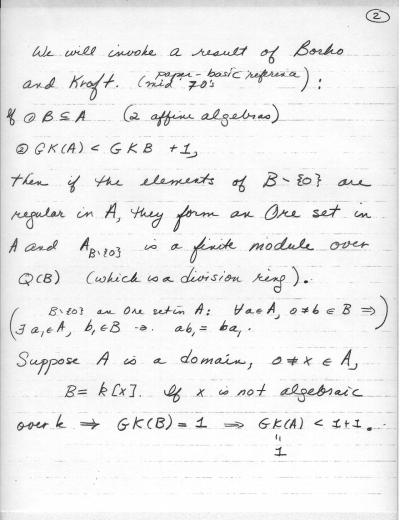 2
We will invoke a result of Borho
and Kraft. (mid 70's paper - basic reference):
If ① B ⊆ A (2 affine algebras)
② GK(A) < GKB + 1,
then if the elements of B∖{0} are
regular in A, they form an Ore set in
A and A_{B∖{0}} is a finite module over
Q(B) (which is a division ring).
(B∖{0} an Ore set in A: ∀a∈A, 0≠b∈B ⇒
∃ a₁∈A, b₁∈B ab₁ = ba₁.)
Suppose A is a domain, 0≠x∈A,
B = k[x]. If x is not algebraic
over k ⇒ GK(B) = 1 ⇒ GK(A) < 1+1.
"
1